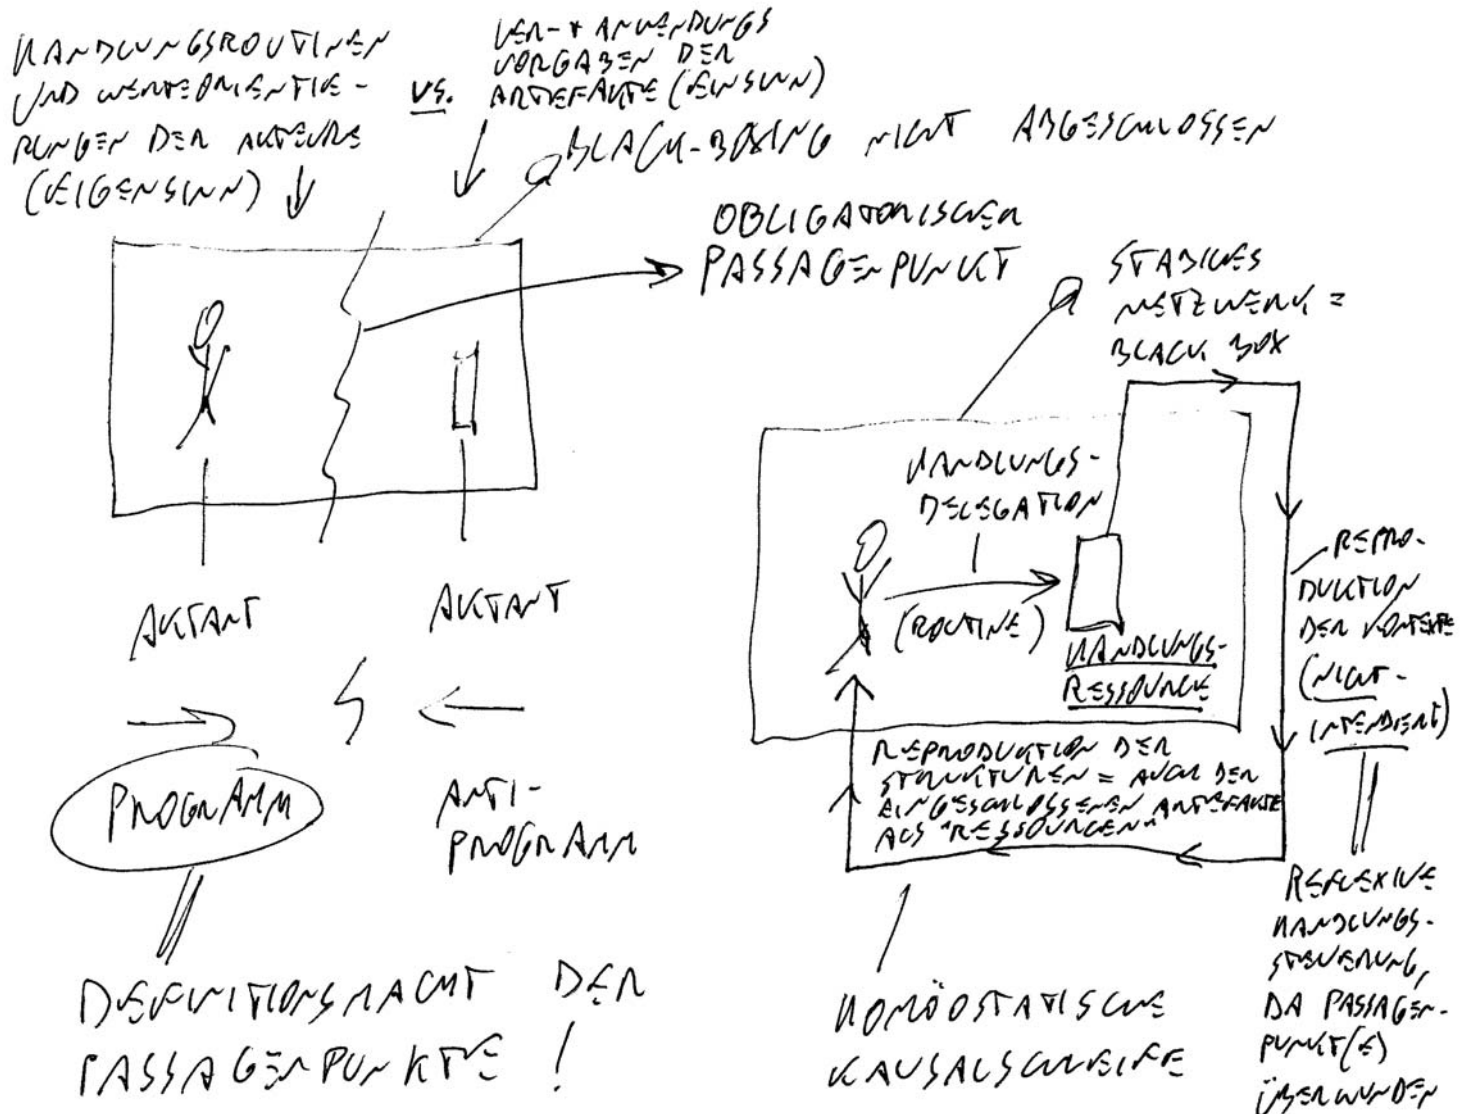 HANDLUNGSROUTINEN
UND WERTEORIENTIE-
RUNGEN DER AKTEURE
(EIGENSINN)
VS.
VER- + ANWENDUNGS
VORGABEN DER
ARTEFAKTE (EINSINN)
BLACK-BOXING NICHT ABGESCHLOSSEN
OBLIGATORISCHER
PASSAGENPUNKT
AKTANT
AKTANT
PROGRAMM
ANTI-
PROGRAMM
DEFINITIONSMACHT DER
PASSAGENPUNKTE !
STABILES
NETZWERK =
BLACK BOX
HANDLUNGS-
DELEGATION
(ROUTINE)
HANDLUNGS-
RESSOURCE
REPRO-
DUKTION
DER KONTEXTE
(NICHT-
INTENDIERT)
REPRODUKTION DER
STRUKTUREN = AUCH DER
EINGESCHLOSSENEN ARTEFAKTE
ALS "RESSOURCEN"
HOMÖOSTATISCHE
KAUSALSCHLEIFE
REFLEXIVE
HANDLUNGS-
STEUERUNG,
DA PASSAGEN-
PUNKT(E)
ÜBERWUNDEN